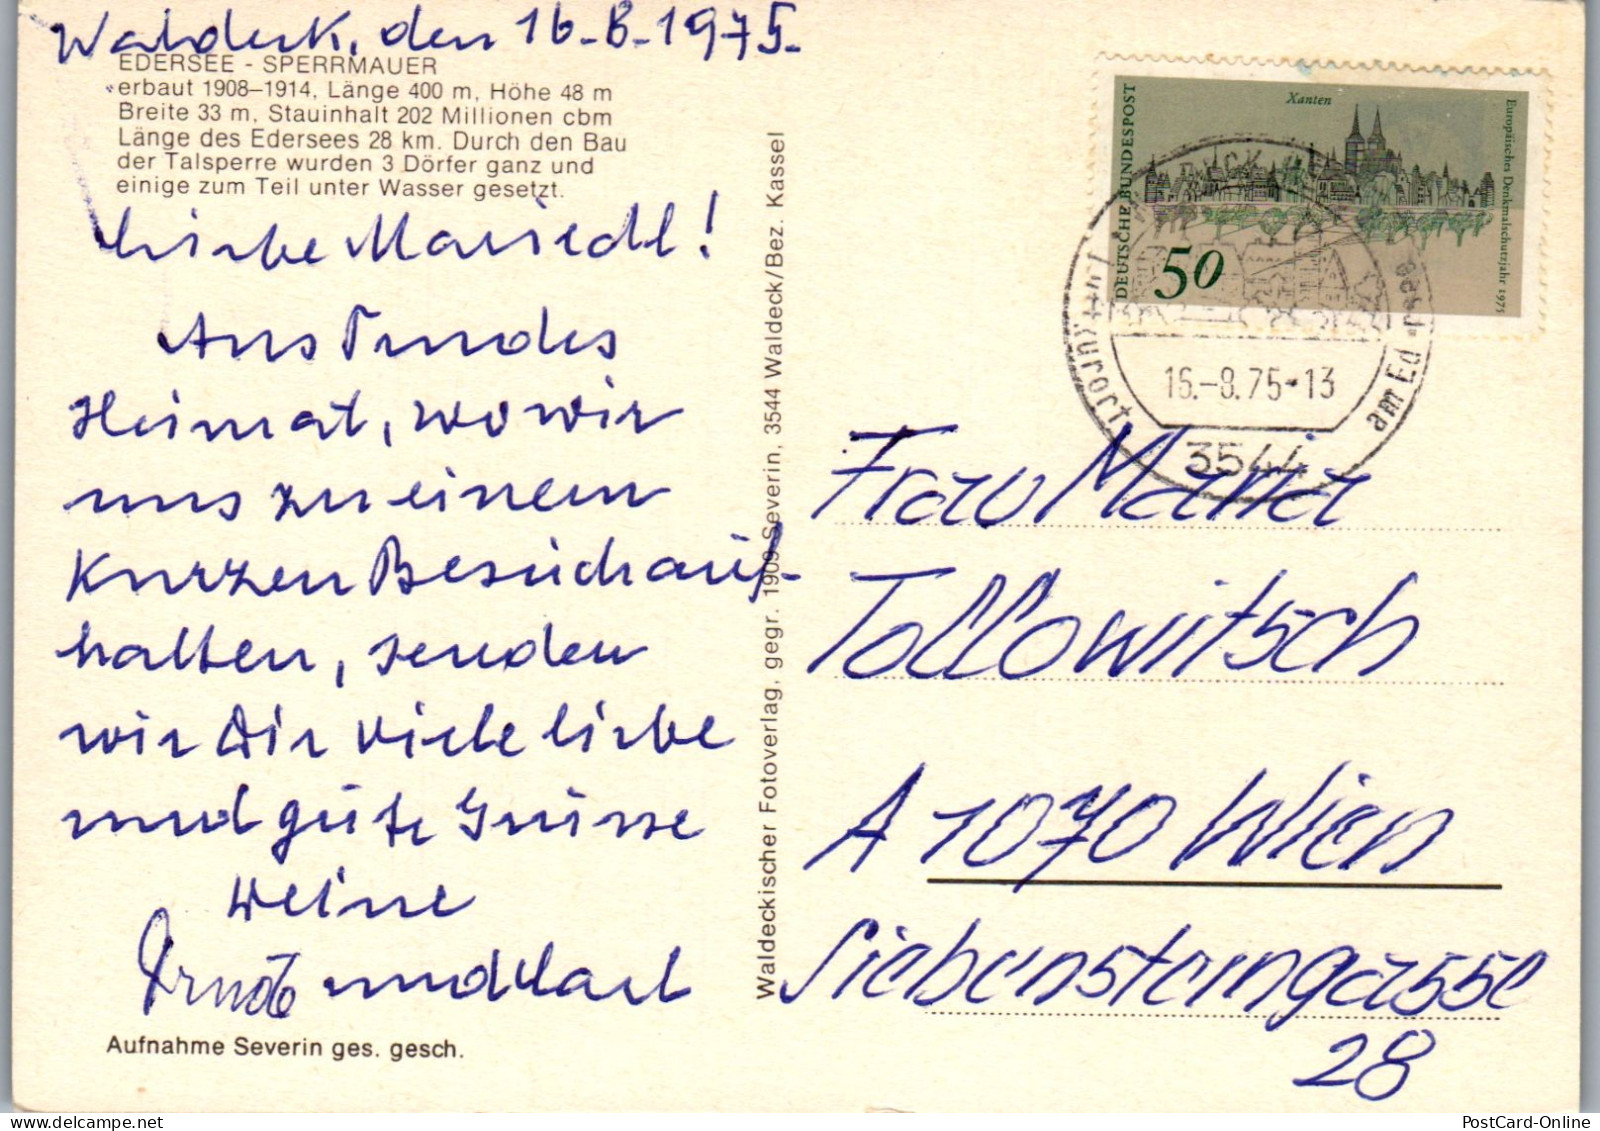 Waldeck, den 16.8.1975.
EDERSEE - SPERRMAUER
erbaut 1908–1914, Länge 400 m, Höhe 48 m
Breite 33 m, Stauinhalt 202 Millionen cbm
Länge des Edersees 28 km. Durch den Bau
der Talsperre wurden 3 Dörfer ganz und
einige zum Teil unter Wasser gesetzt.
Liebe Mariedl!
Aus
Heimat, wo wir
uns zu einem
kurzen Besuch auf-
halten, senden
wir Dir viele liebe
und gute Grüsse
Deine
und Karl
Aufnahme Severin ges. gesch.
Waldeckischer Fotoverlag, gegr. 1909 Severin, 3544 Waldeck/Bez. Kassel
DEUTSCHE BUNDESPOST
Xanten
50
Europäisches Denkmalschutzjahr 1975
Luftkurort
am Ed
16.-8.75-13
3544
Frau Maria
Tollowitsch
A 1070 Wien
Siebensterngasse
28
PostCard-Online